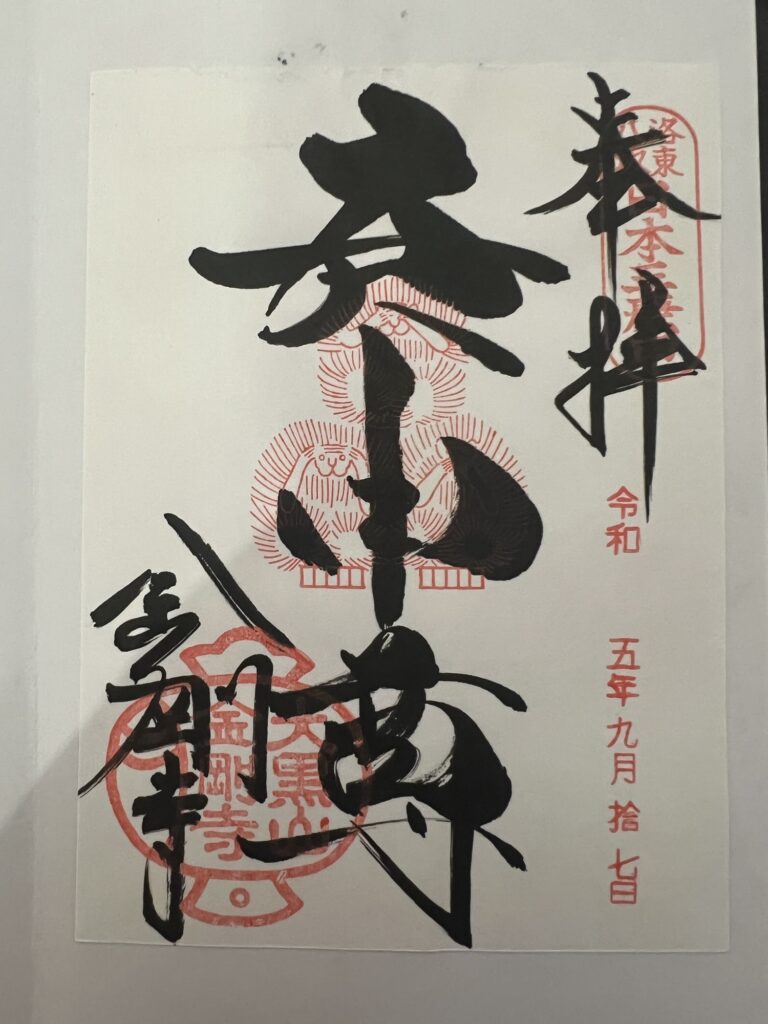 奉拝
洛東
八坂
日本三庚申
令和 五年九月拾七日
庚申尊
金剛寺
大黒山
金剛寺